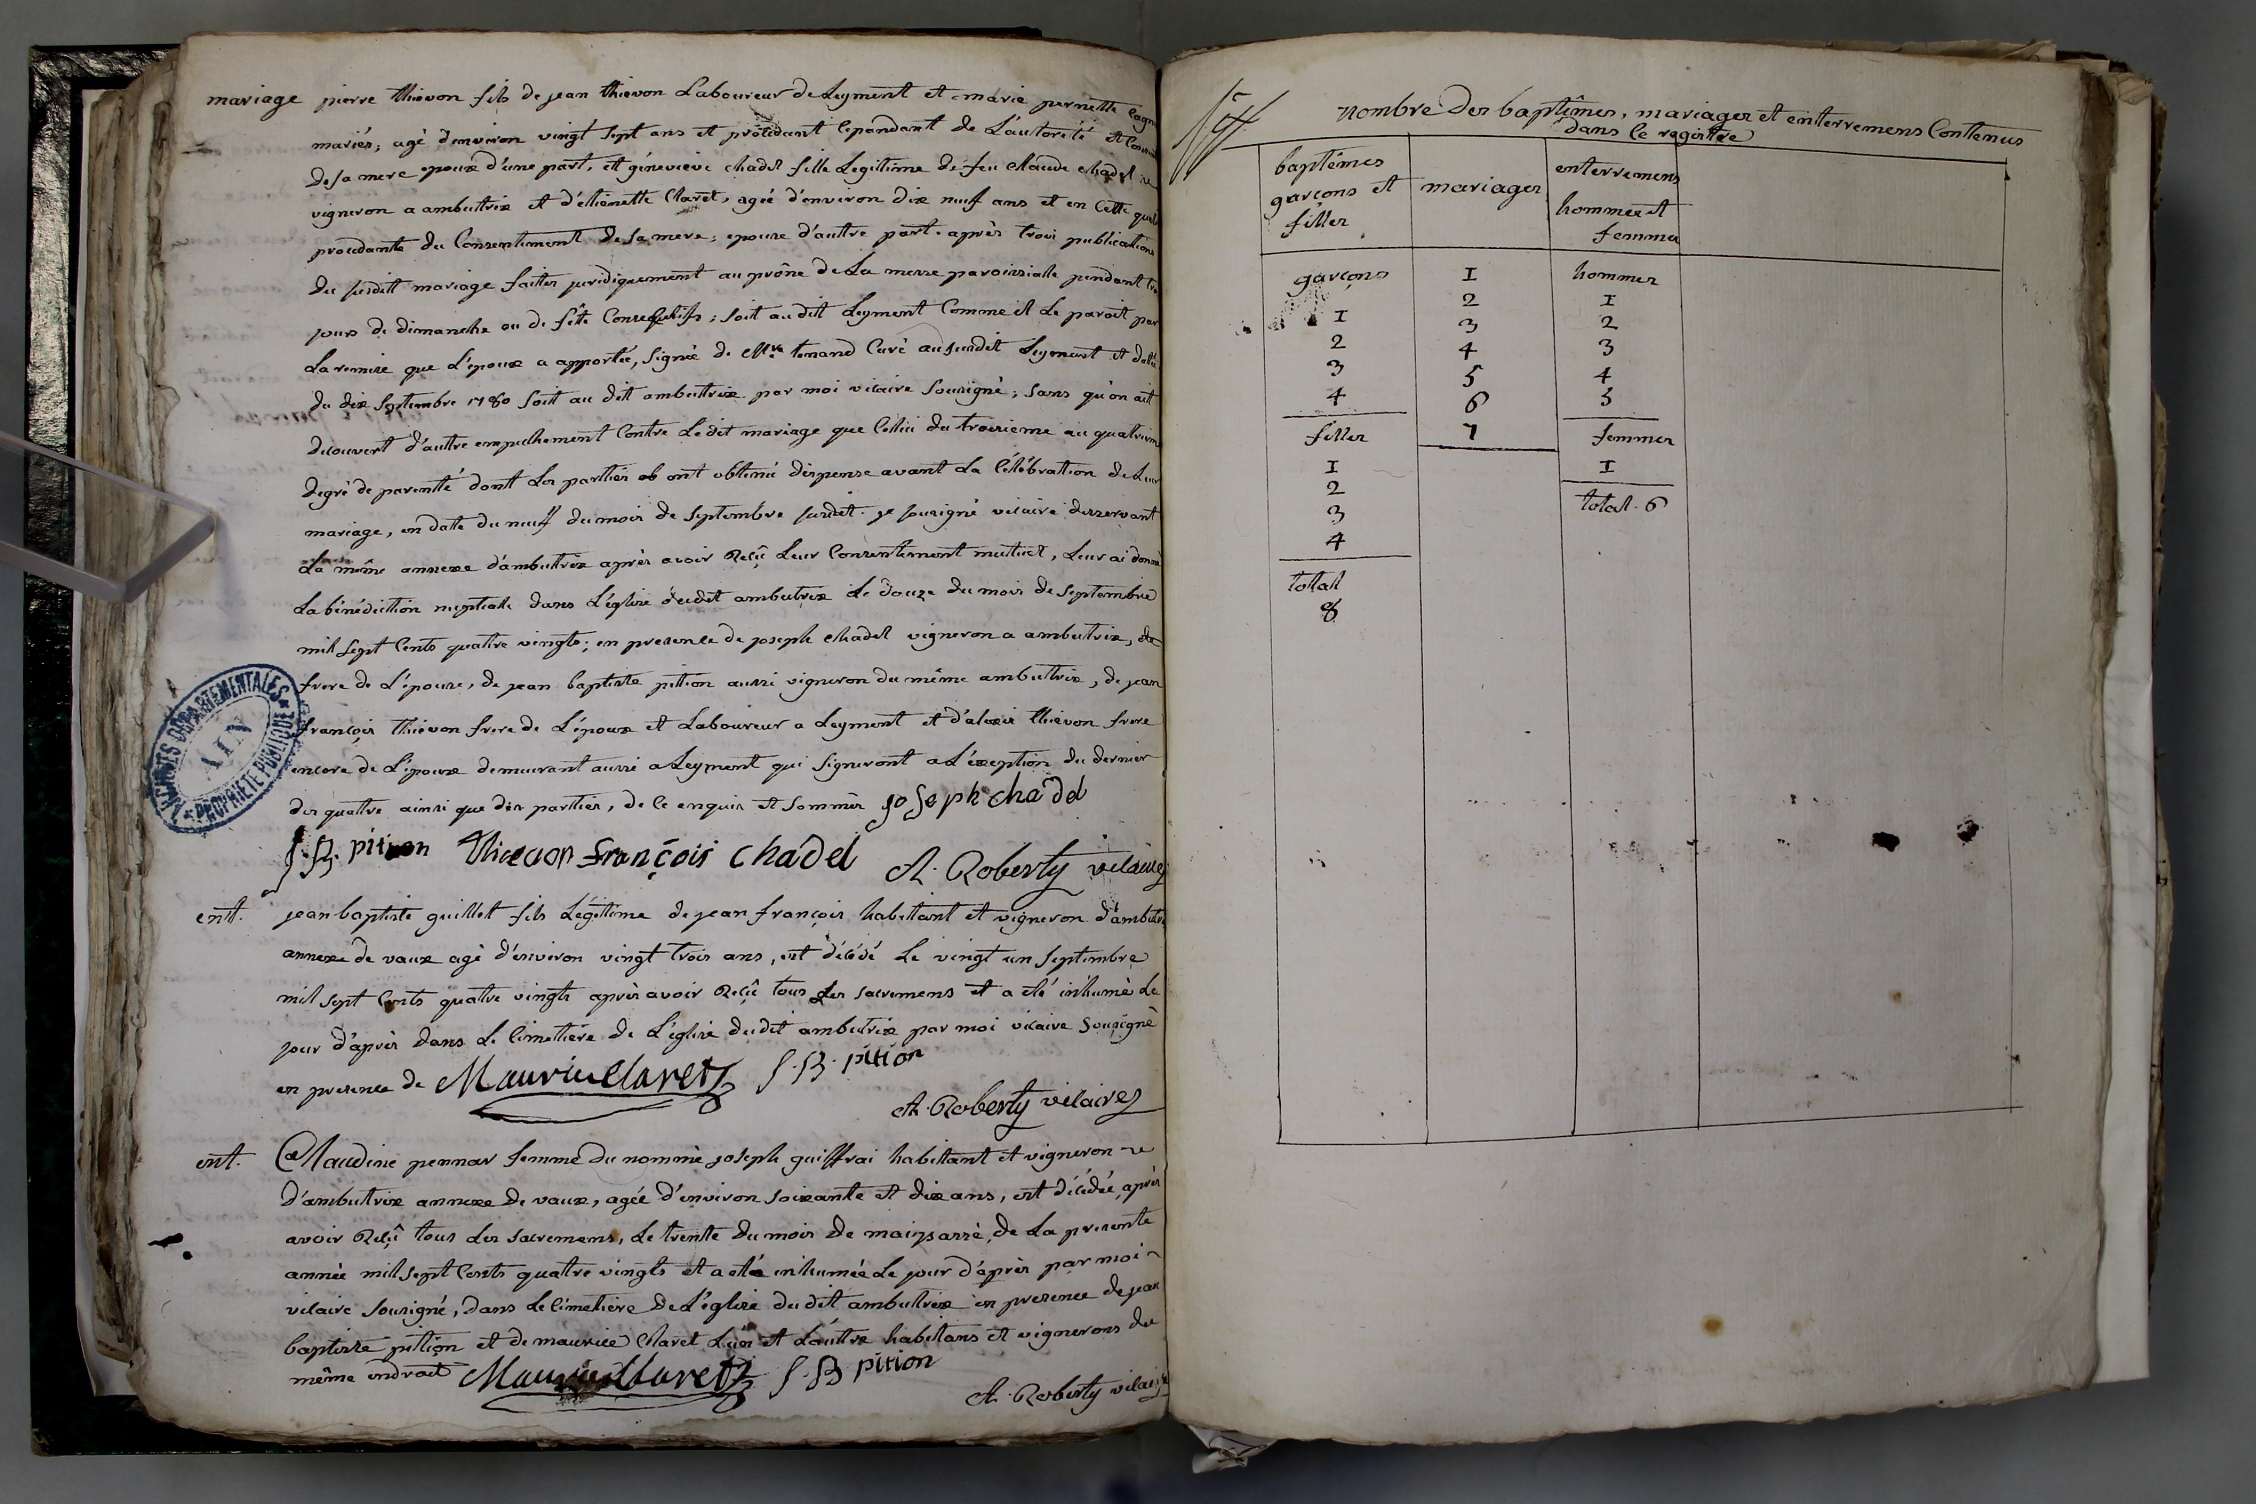 mariage pierre thievon fils de jean thievon Laboureur de Leyment et marie pernette
mariés, agé d'environ vingt sept ans et procédant cependant de L'autorité et
de sa mere epoux d'une part, et géneviève chadel fille Legitime de feu claude chadel
vigneron a ambutrix et d'étienette Claret, agée d'environ dix neuf ans et en Cette
procédante du Consentiment de sa mere, epouse d'autre part. après trois publications
du susdit mariage faittes juridiquement au prône de La messe paroissialle pendant
jours de dimanche ou de fête Consequtifs; soit au dit Leyment Comme il Le paroit par
La remise que L'époux a apportée, signée de tenand Curé au susdit Leyment et
du dix septembre 1780 soit au dit ambutrix par moi vicaire sousigné; sans qu'on ait
découvert d'autre empechement Contre Le dit mariage que Cellui du troisieme au quatrieme
degré de parenté dont Les parties ont obtenu dispense avant La Célébration de Leur
mariage, en date du neuf du mois de septembre susdit. je sousigné vicaire desservant
La même annexe d'ambutrix après avoir Reçû Leur Consentement mutuel, Leur ai donné
La bénédiction nuptiale dans L'église dudit ambutrix Le douze du mois de septembre
mil sept Cents quatre vingts; en presence de joseph chadel vigneron a ambutrix,
frere de L'épouse, de jean baptiste pition aussi vigneron du même ambutrix, de jean
françois thievon frere de L'époux et Laboureur a Leyment et d'alexis thievon frere
encore de L'époux demeurant aussi a Leyment qui signeront a L'éxeption du dernier
des quatre ainsi que des parties, de Ce enquis et sommés joseph chadel
J. B. pition thievon françois chadel A. Roberty vicaire
ent. jean baptiste guillot fils Légitime de jean françois habitant et vigneron
annexe de vaux agé d'environ vingt trois ans, est décédé Le vingt un septembre
mil sept Cents quatre vingts après avoir Reçû tous Les sacremens et a été inhumé Le
jour d'après dans Le Cimetière de L'église dudit ambutrix par moi vicaire sousigné
en presence de Maurice Claret J. B. pition
A. Roberty vicaire
ent. Claudine pennar femme du nommé joseph guiffrai habitant et vigneron
d'ambutrix annexe de vaux, agée d'environ soixante et dix ans, est décédée après
avoir Reçû tous Les sacremens, Le trente du mois de mai passé, de La presente
année mil sept Cents quatre vingts et a été inhumée Le jour d'après par moi
vicaire sousigné, dans Le Cimetière de L'église du dit ambutrix en presence de jean
baptiste pition et de maurice Claret L'un et L'autre habitans et vignerons du
même endroit Maurice Claret J. B pition
A. Roberty vicaire
ARCHIVES DÉPARTEMENTALES
AIN
PROPRIÉTÉ PUBLIQUE
nombre des baptêmes, mariages et enterremens Contenus
dans le registre
baptêmes
garçons et
filles
mariages
enterremens
hommes et
femmes
garçons
1
2
3
4
filles
1
2
3
4
total
8
1
2
3
4
5
6
7
hommes
1
2
3
4
5
femmes
1
total. 6